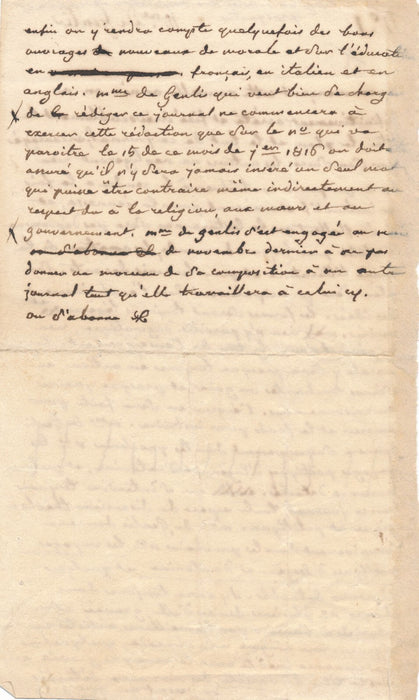 enfin on y rendra compte quelquefois des bons
ouvrages nouveaux de morale et sur l'éducation
en français, en italien et en
anglais. mme de Genlis qui veut bien se charger
de rédiger ce journal ne commencera à
exercer cette rédaction que sur le no qui va
paroitre le 15 de ce mois de jer 1816 on doit
assuré qu'il n'y sera jamais inséré un seul mot
qui puisse être contraire même indirectement au
respect du à la religion, aux mœurs et au
gouvernement. mme de genlis s'est engagée au
de novembre dernier à ne pas
donner un morceau de sa composition à un autre
journal tant qu'elle travaillera à celui cy.
on s'abonne &c